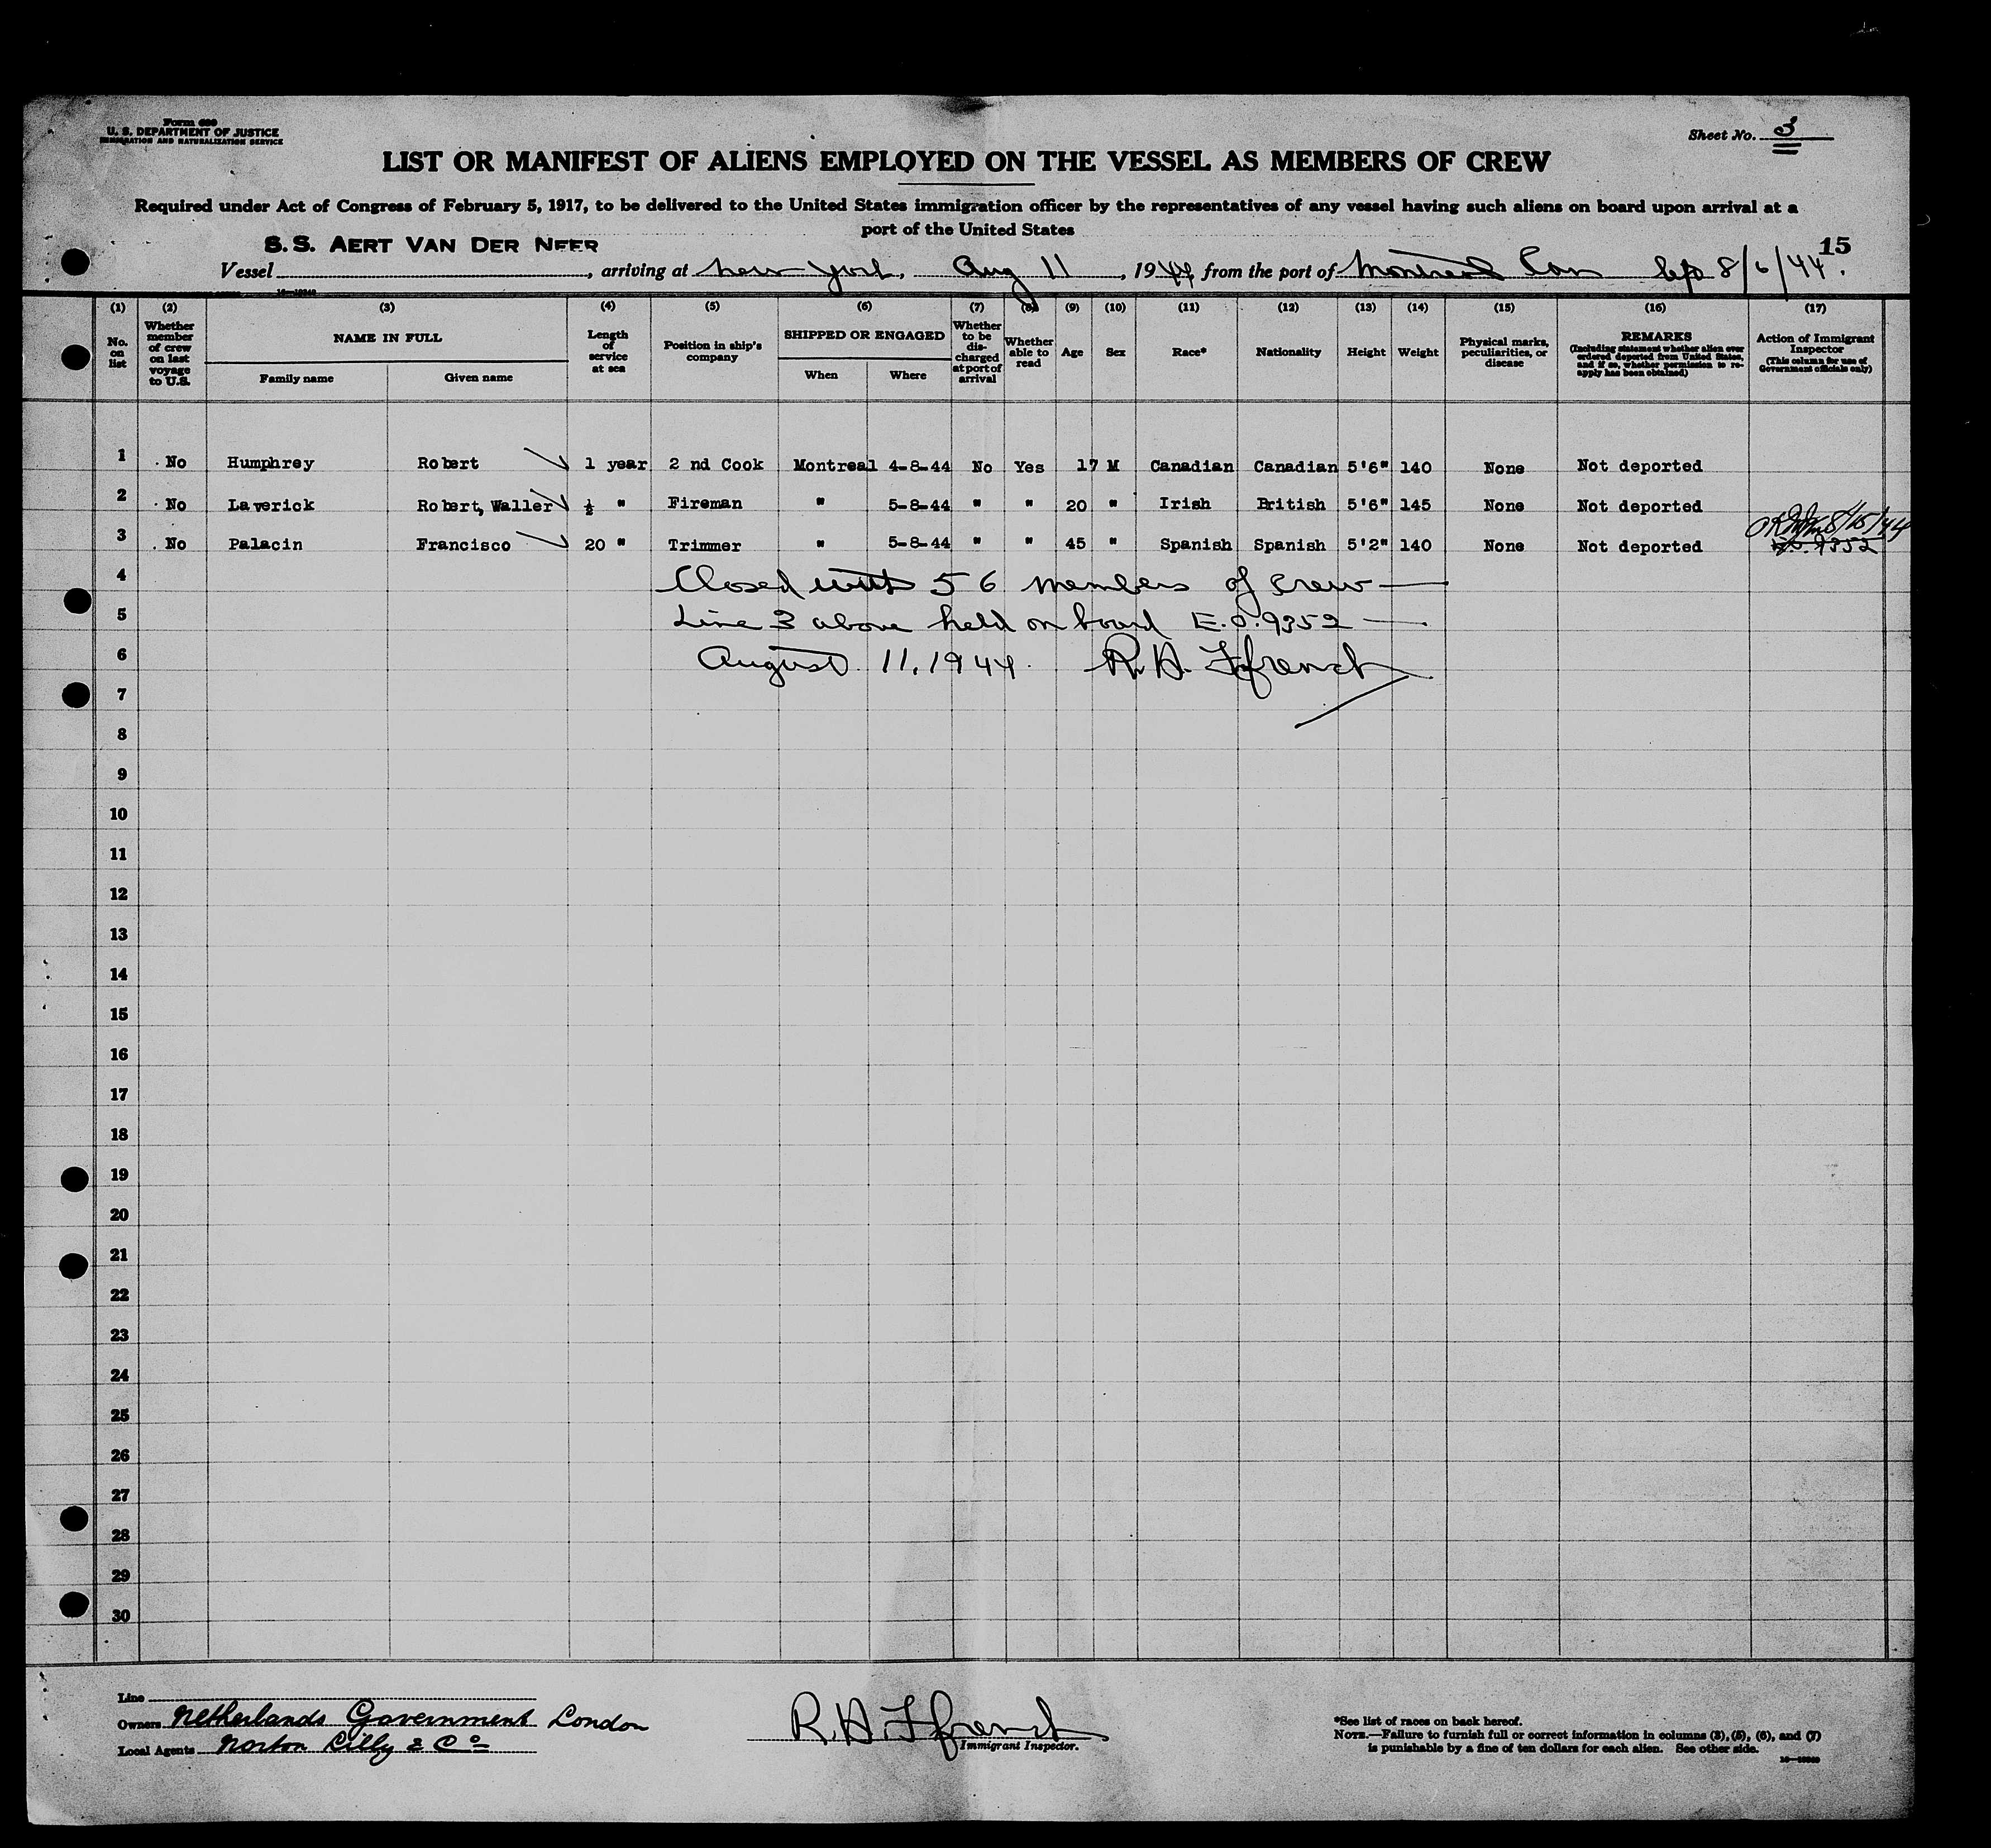 Form 680
U. S. DEPARTMENT OF JUSTICE
IMMIGRATION AND NATURALIZATION SERVICE
Sheet No. 3
LIST OR MANIFEST OF ALIENS EMPLOYED ON THE VESSEL AS MEMBERS OF CREW
Required under Act of Congress of February 5, 1917, to be delivered to the United States immigration officer by the representatives of any vessel having such aliens on board upon arrival at a
port of the United States
15
S.S. AERT VAN DER NEER
Vessel , arriving at New York, Aug 11 , 1944 from the port of Montreal Can 8/6/44.
(1) (2) (3) (4) (5) (6) (7) (8) (9) (10) (11) (12) (13) (14) (15) (16) (17)
No. on list
Whether member of crew on last voyage to U.S.
NAME IN FULL
Family name Given name
Length of service at sea
Position in ship's company
SHIPPED OR ENGAGED
When Where
Whether to be discharged at port of arrival
Whether able to read
Age
Sex
Race*
Nationality
Height
Weight
Physical marks, peculiarities, or disease
REMARKS
(Including statement whether alien ever ordered deported from United States, and if so, whether permission to reapply has been obtained)
Action of Immigrant Inspector
(This column for use of Government officials only)
1 No Humphrey Robert 1 year 2 nd Cook Montreal 4-8-44 No Yes 17 M Canadian Canadian 5'6" 140 None Not deported
2 No Laverick Robert, Waller ½ " Fireman " 5-8-44 " " 20 " Irish British 5'6" 145 None Not deported
3 No Palacin Francisco 20 " Trimmer " 5-8-44 " " 45 " Spanish Spanish 5'2" 140 None Not deported 8/15/44 9352
4 Closed with 56 members of crew —
5 Line 3 above held on board E.O. 9352 —
6 August 11, 1944. R.H. Ffrench
7
8
9
10
11
12
13
14
15
16
17
18
19
20
21
22
23
24
25
26
27
28
29
30
Line
Owners Netherlands Government London
Local Agents Norton Lilly & Co
R.H. Ffrench
Immigrant Inspector.
*See list of races on back hereof.
NOTE.—Failure to furnish full or correct information in columns (3), (5), (6), and (7)
is punishable by a fine of ten dollars for each alien. See other side.